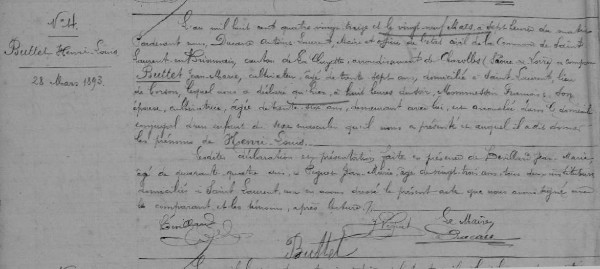 N° 4.
Buttet Henri Louis
28 Mars 1893.
L'an mil huit cent quatre vingt treize et le vingt neuf Mars à sept heures du matin
pardevant nous, Durand Antoine Laurent, Maire et officier de l'état civil de la Commune de Saint
Laurent en Brionnais, canton de La Clayette, arrondissement de Charolles (Saône et Loire) a comparu
Buttet Jean Marie, cultivateur, âgé de trente sept ans, domicilié à Saint Laurent, lieu
de lequel nous a déclaré qu'hier, à huit heures du soir, Monmessin Françoise, son
épouse, cultivatrice, âgée de trente ans, demeurant avec lui, est accouchée dans le domicile
conjugal d'un enfant de sexe masculin qu'il nous a présenté et auquel il a dit donner
les prénoms de Henri-Louis.
Lesdites déclaration et présentation faites en présence de Jean Marie,
âgé de quarante quatre ans, et Jean Marie, âgé de vingt trois ans, tous deux instituteurs,
domiciliés à Saint Laurent, et avons dressé le présent acte que nous avons signé avec
le comparant et les témoins, après lecture.
Le Maire,
Buttet